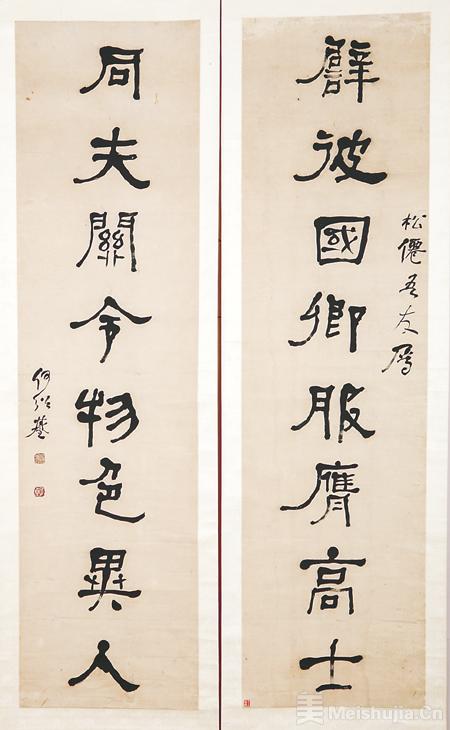 譬彼國卿服膺高士
松僊吾友属
同夫關令物色異人
何紹基
美 Meishujia.Cn